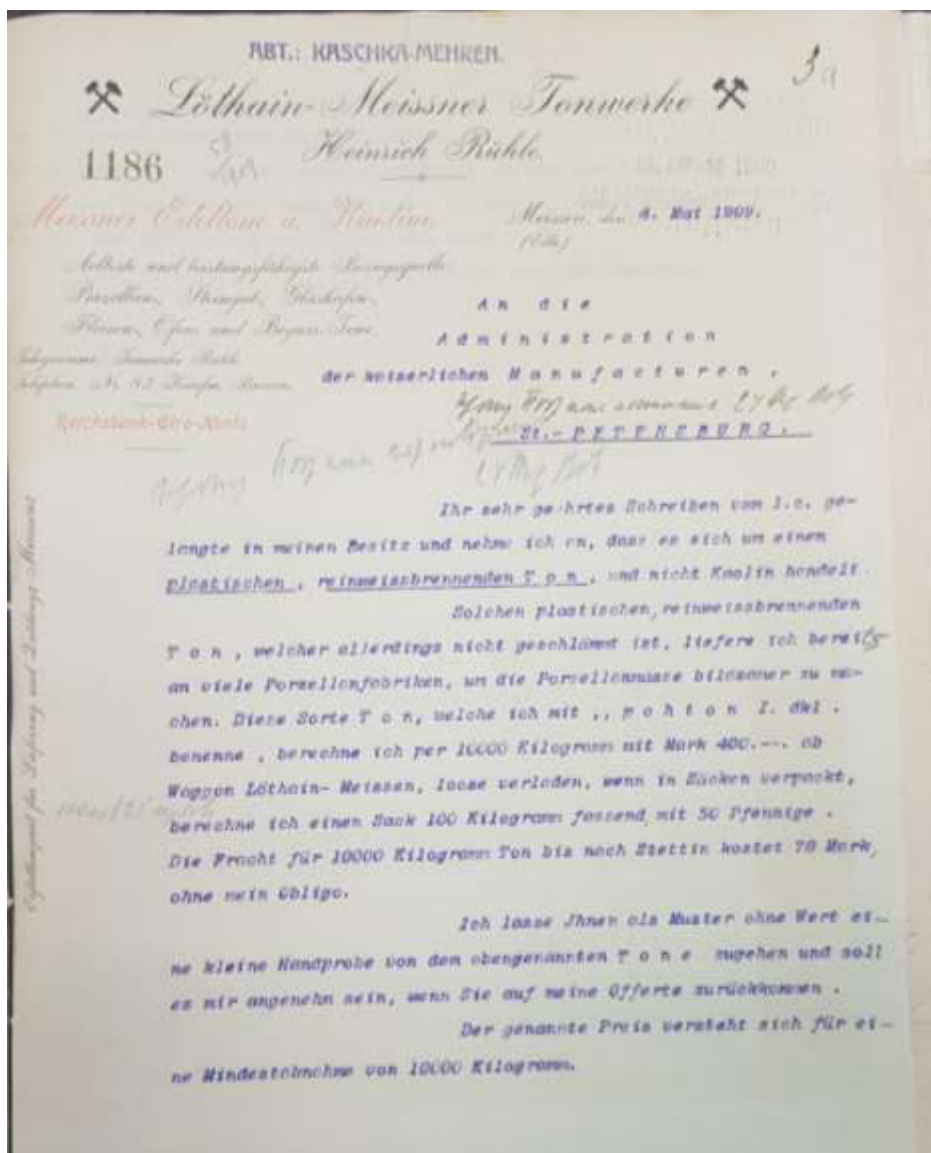 ABT.: KASCHKA-MEHREN.
3a
Löthain-Meissner Tonwerke
Heinrich Rühle.
1186
Meissner Erdtone u. Kaoline
Meissen, den 4. Mai 1909.
(Elbe)
Aelteste und leistungsfähigste Bezugsquelle
Porzellan, Steingut, Glashafen,
Fliesen, Ofen und Begurs-Tone.
Telegramme: Tonwerke Rühle
Telephon No. 83
Reichsbank-Giro-Konto
An die
Administration
der kaiserlichen Manufacturen.
St.-PETERSBURG.
Ihr sehr geehrtes Schreiben vom 1.c. ge-
langte in meinen Besitz und nehme ich an, dass es sich um einen
plastischen, reinweissbrennenden Ton, und nicht Kaolin handelt.
Solchen plastischen, reinweissbrennenden
Ton, welcher allerdings nicht geschlämmt ist, liefere ich bereits
an viele Porzellanfabriken, um die Porzellanmasse bildsamer zu ma-
chen. Diese Sorte Ton, welche ich mit ,, pohton I. dkl.
benenne, berechne ich per 10000 Kilogramm mit Mark 400.--. ab
Waggon Löthain- Meissen, loose verladen, wenn in Säcken verpackt,
berechne ich einen Sack 100 Kilogramm fassend mit 50 Pfennige.
Die Fracht für 10000 Kilogramm Ton bis nach Stettin kostet 78 Mark,
ohne mein Obligo.
Ich lasse Jhnen als Muster ohne Wert ei-
ne kleine Handprobe von dem obengenannten Tone zugehen und soll
es mir angenehm sein, wenn Sie auf meine Offerte zurückkommen.
Der genannte Preis versteht sich für ei-
ne Mindestabnahme von 10000 Kilogramm.
Erfüllungsort für Lieferung und Zahlung: Meissen